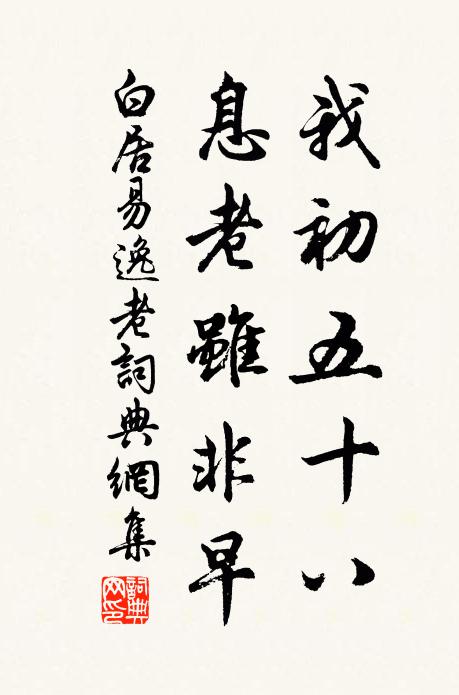 我初五十八
息老雖非早
白居易逸老詞典網集
詞典網印